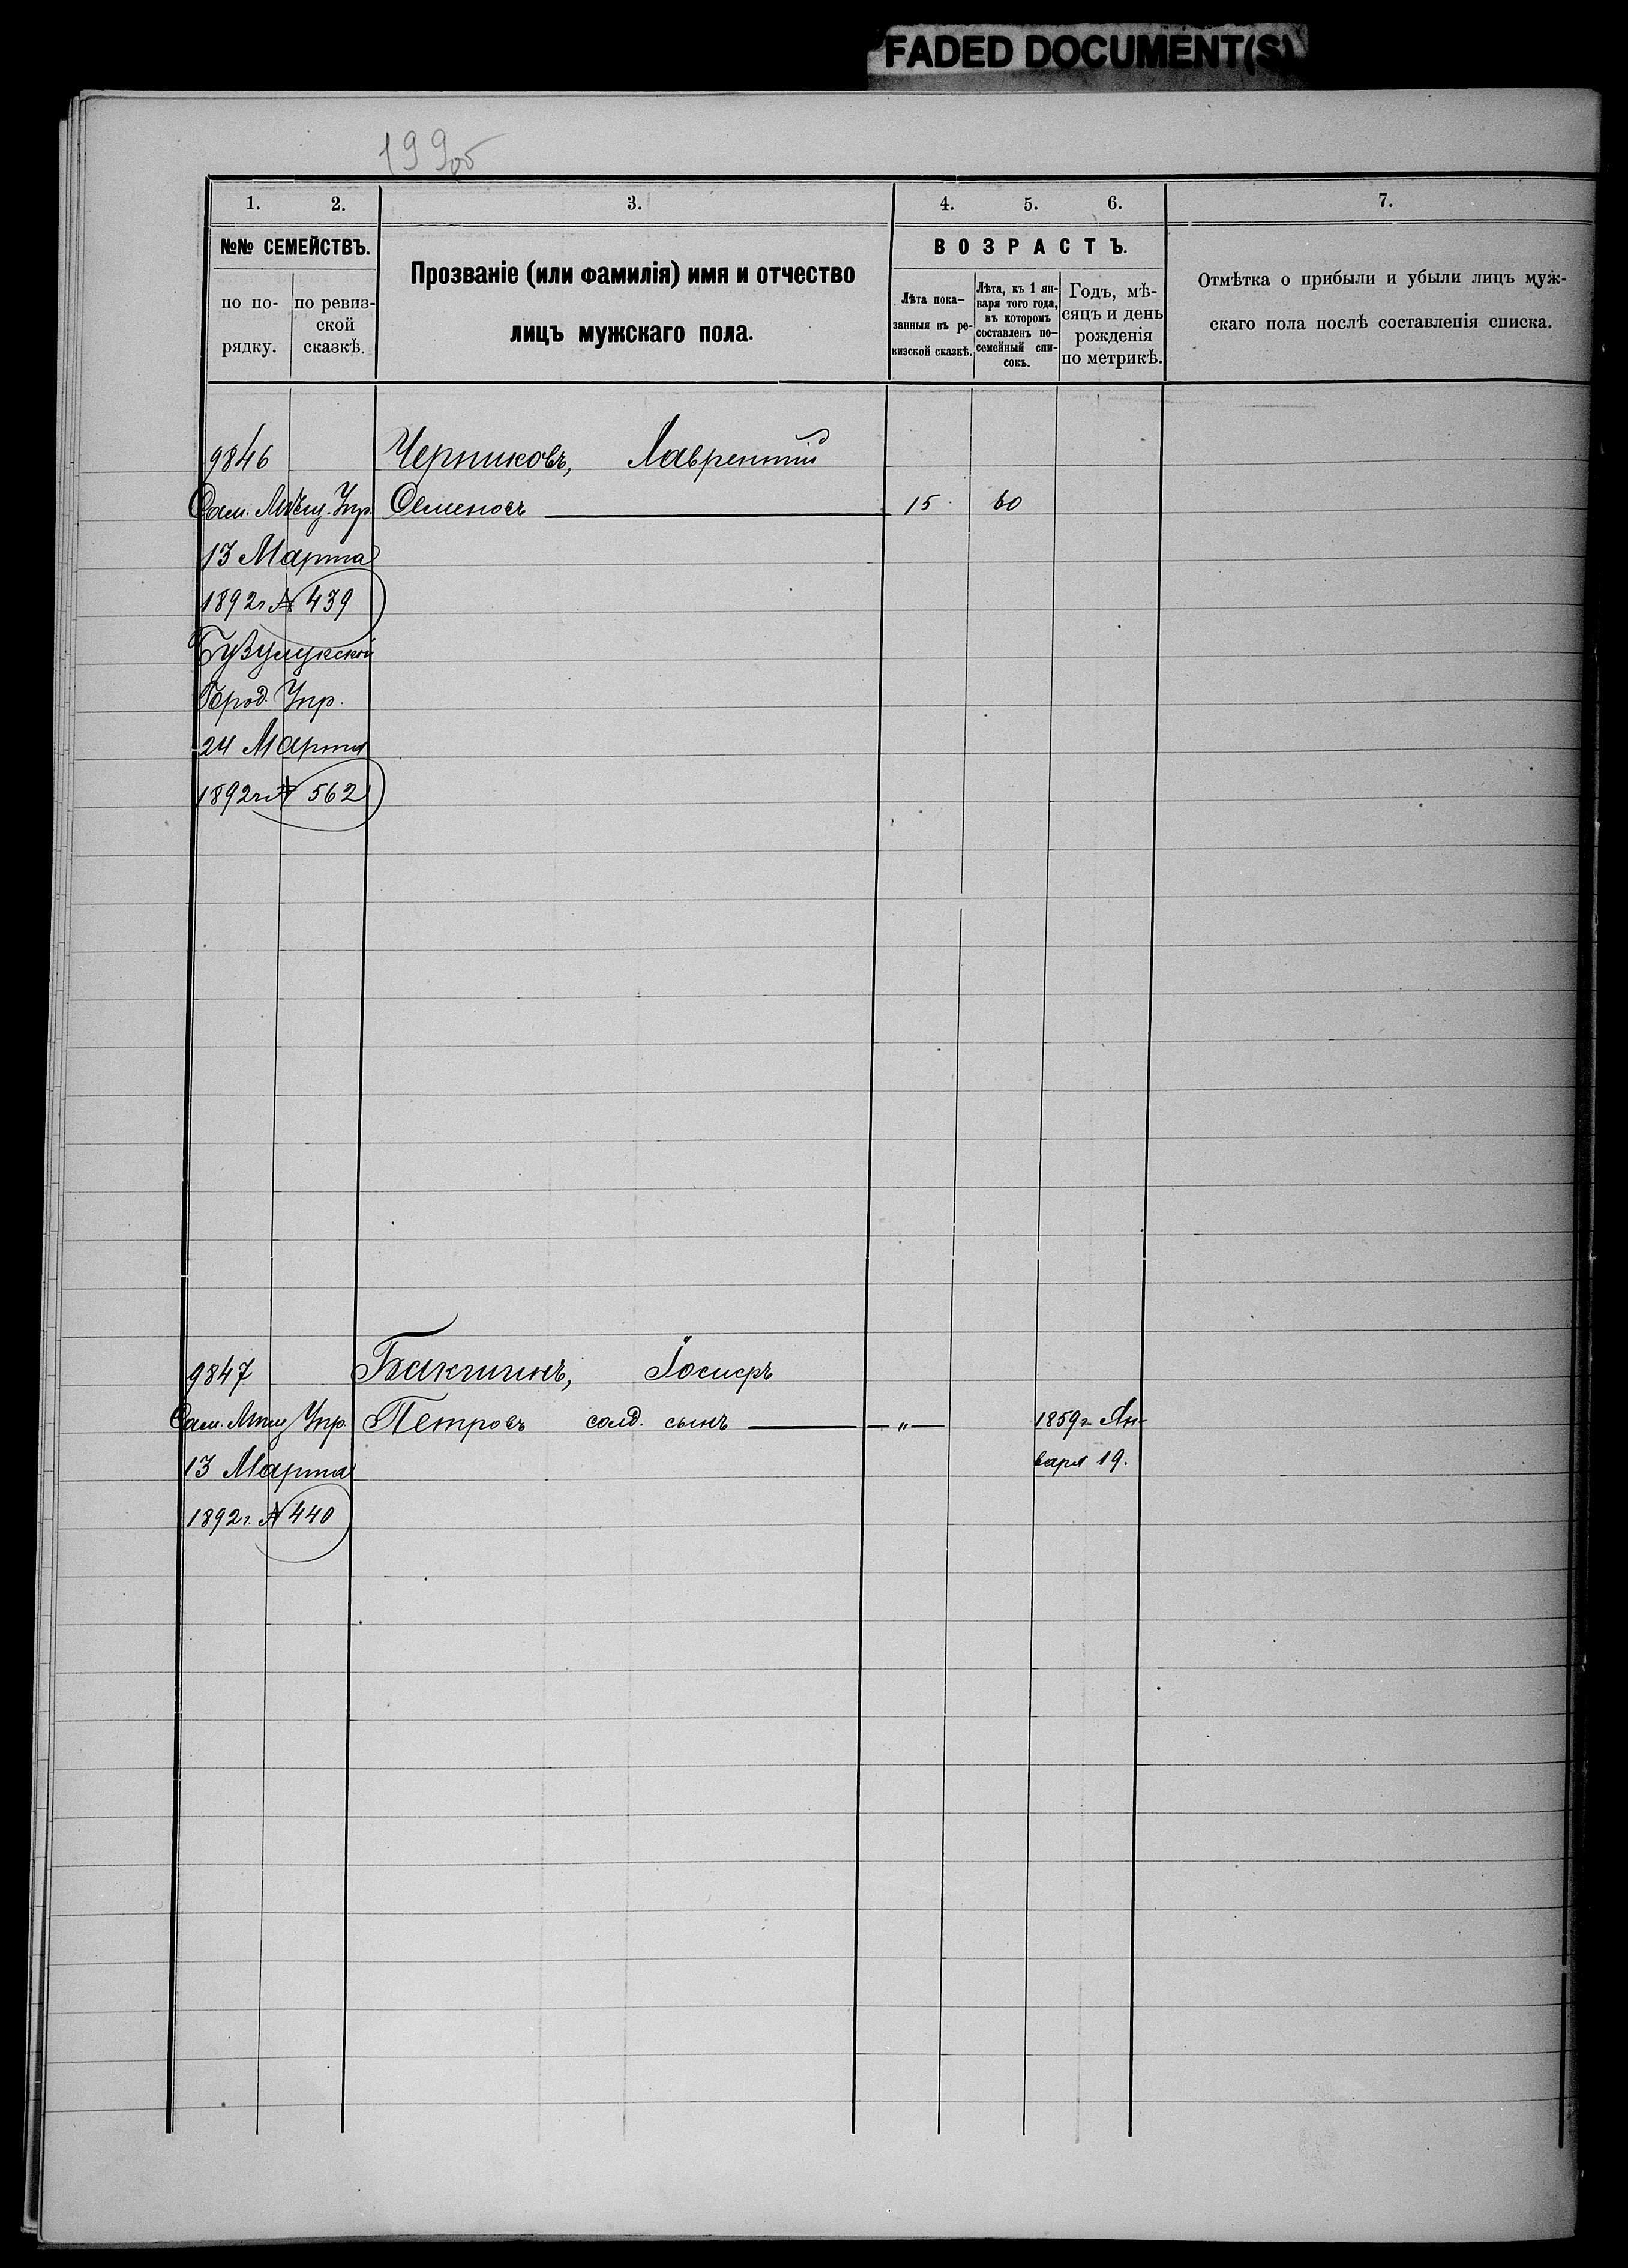 FADED DOCUMENT(S)
199об
1. 2. 3. 4. 5. 6. 7.
№№ СЕМЕЙСТВЪ.
по по-рядку.
по ревиз-ской сказкѣ.
Прозваніе (или фамилія) имя и отчество
лицъ мужскаго пола.
ВОЗРАСТЪ.
Лѣта пока-занныя въ ре-визской сказкѣ.
Лѣта, къ 1 ян-варя того года, въ которомъ составленъ по-семейный спи-сокъ.
Годъ, мѣ-сяцъ и день рожденія по метрикѣ.
Отмѣтка о прибыли и убыли лицъ муж-
скаго пола послѣ составленія списка.
9846 Черниковъ, Лаврентій
Сам. Мѣщ. Упр. Семеновъ 15 60
13 Марта
1892 г № 439
Бузулукской
Город. Упр.
24 Марта
1892 г № 562
9847 Іосифъ
Сам. Мѣщ Упр. Петровъ солд. сынъ " 1859 г Ян-
13 Марта варя 19.
1892 г. № 440